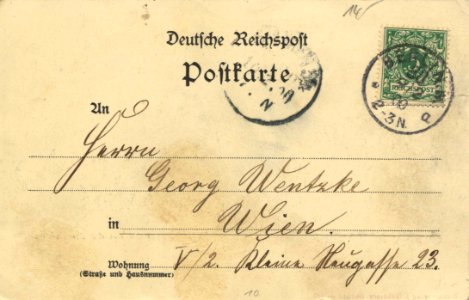 14
Deutsche Reichspost
Postkarte
An
Herrn
Georg Wentzke
in Wien.
Wohnung V/2. Kleine Neugasse 23.
(Straße und Hausnummer)
2-3N.
REICHSPOST
10